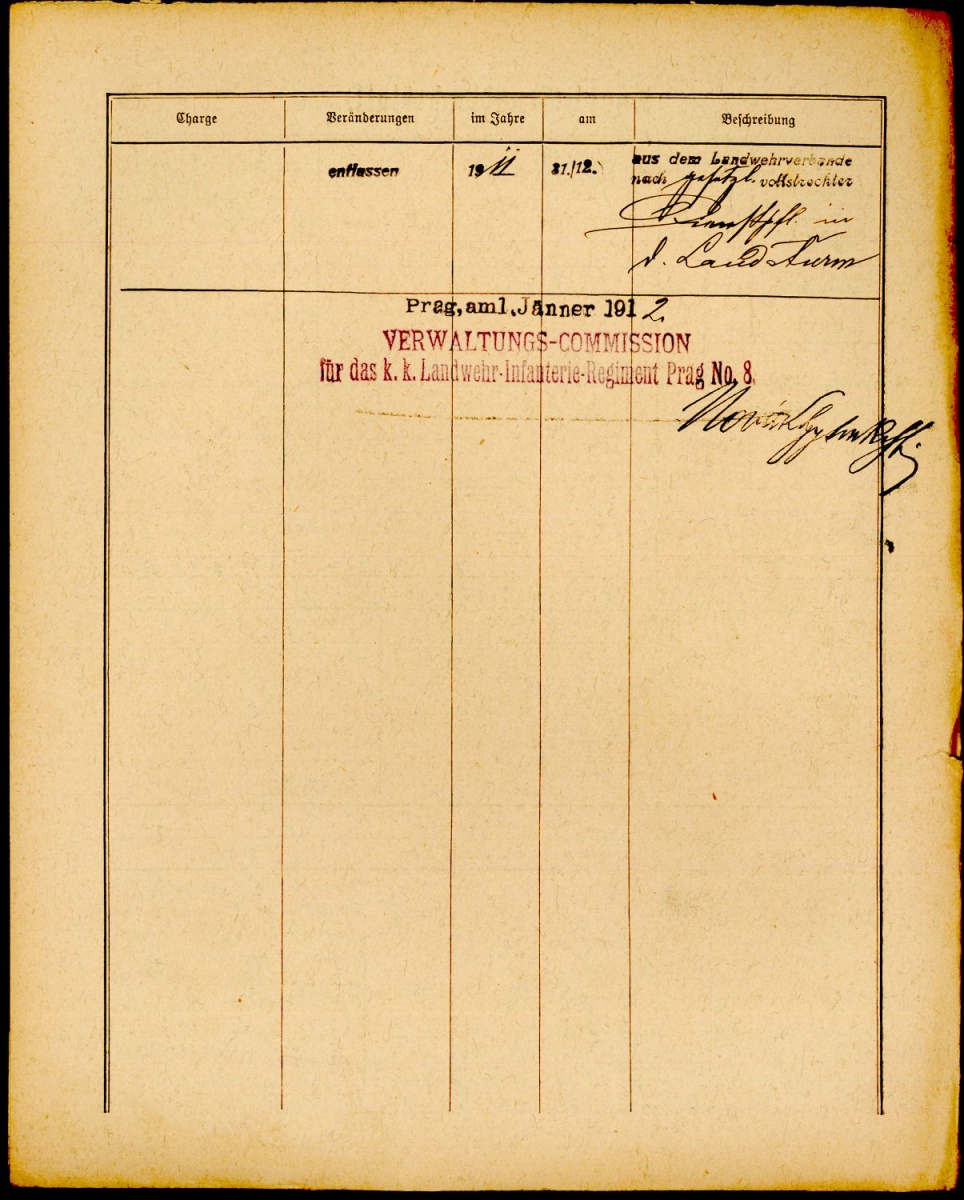 Charge Veränderungen im Jahre am Beschreibung
entlassen 1911 31./12. aus dem Landwehrverbande
nach gesetzl. vollstreckter
Dienstpfl. in
d. Landsturm
Prag, am 1. Jänner 1912
VERWALTUNGS-COMMISSION
für das k. k. Landwehr-Infanterie-Regiment Prag No. 8.